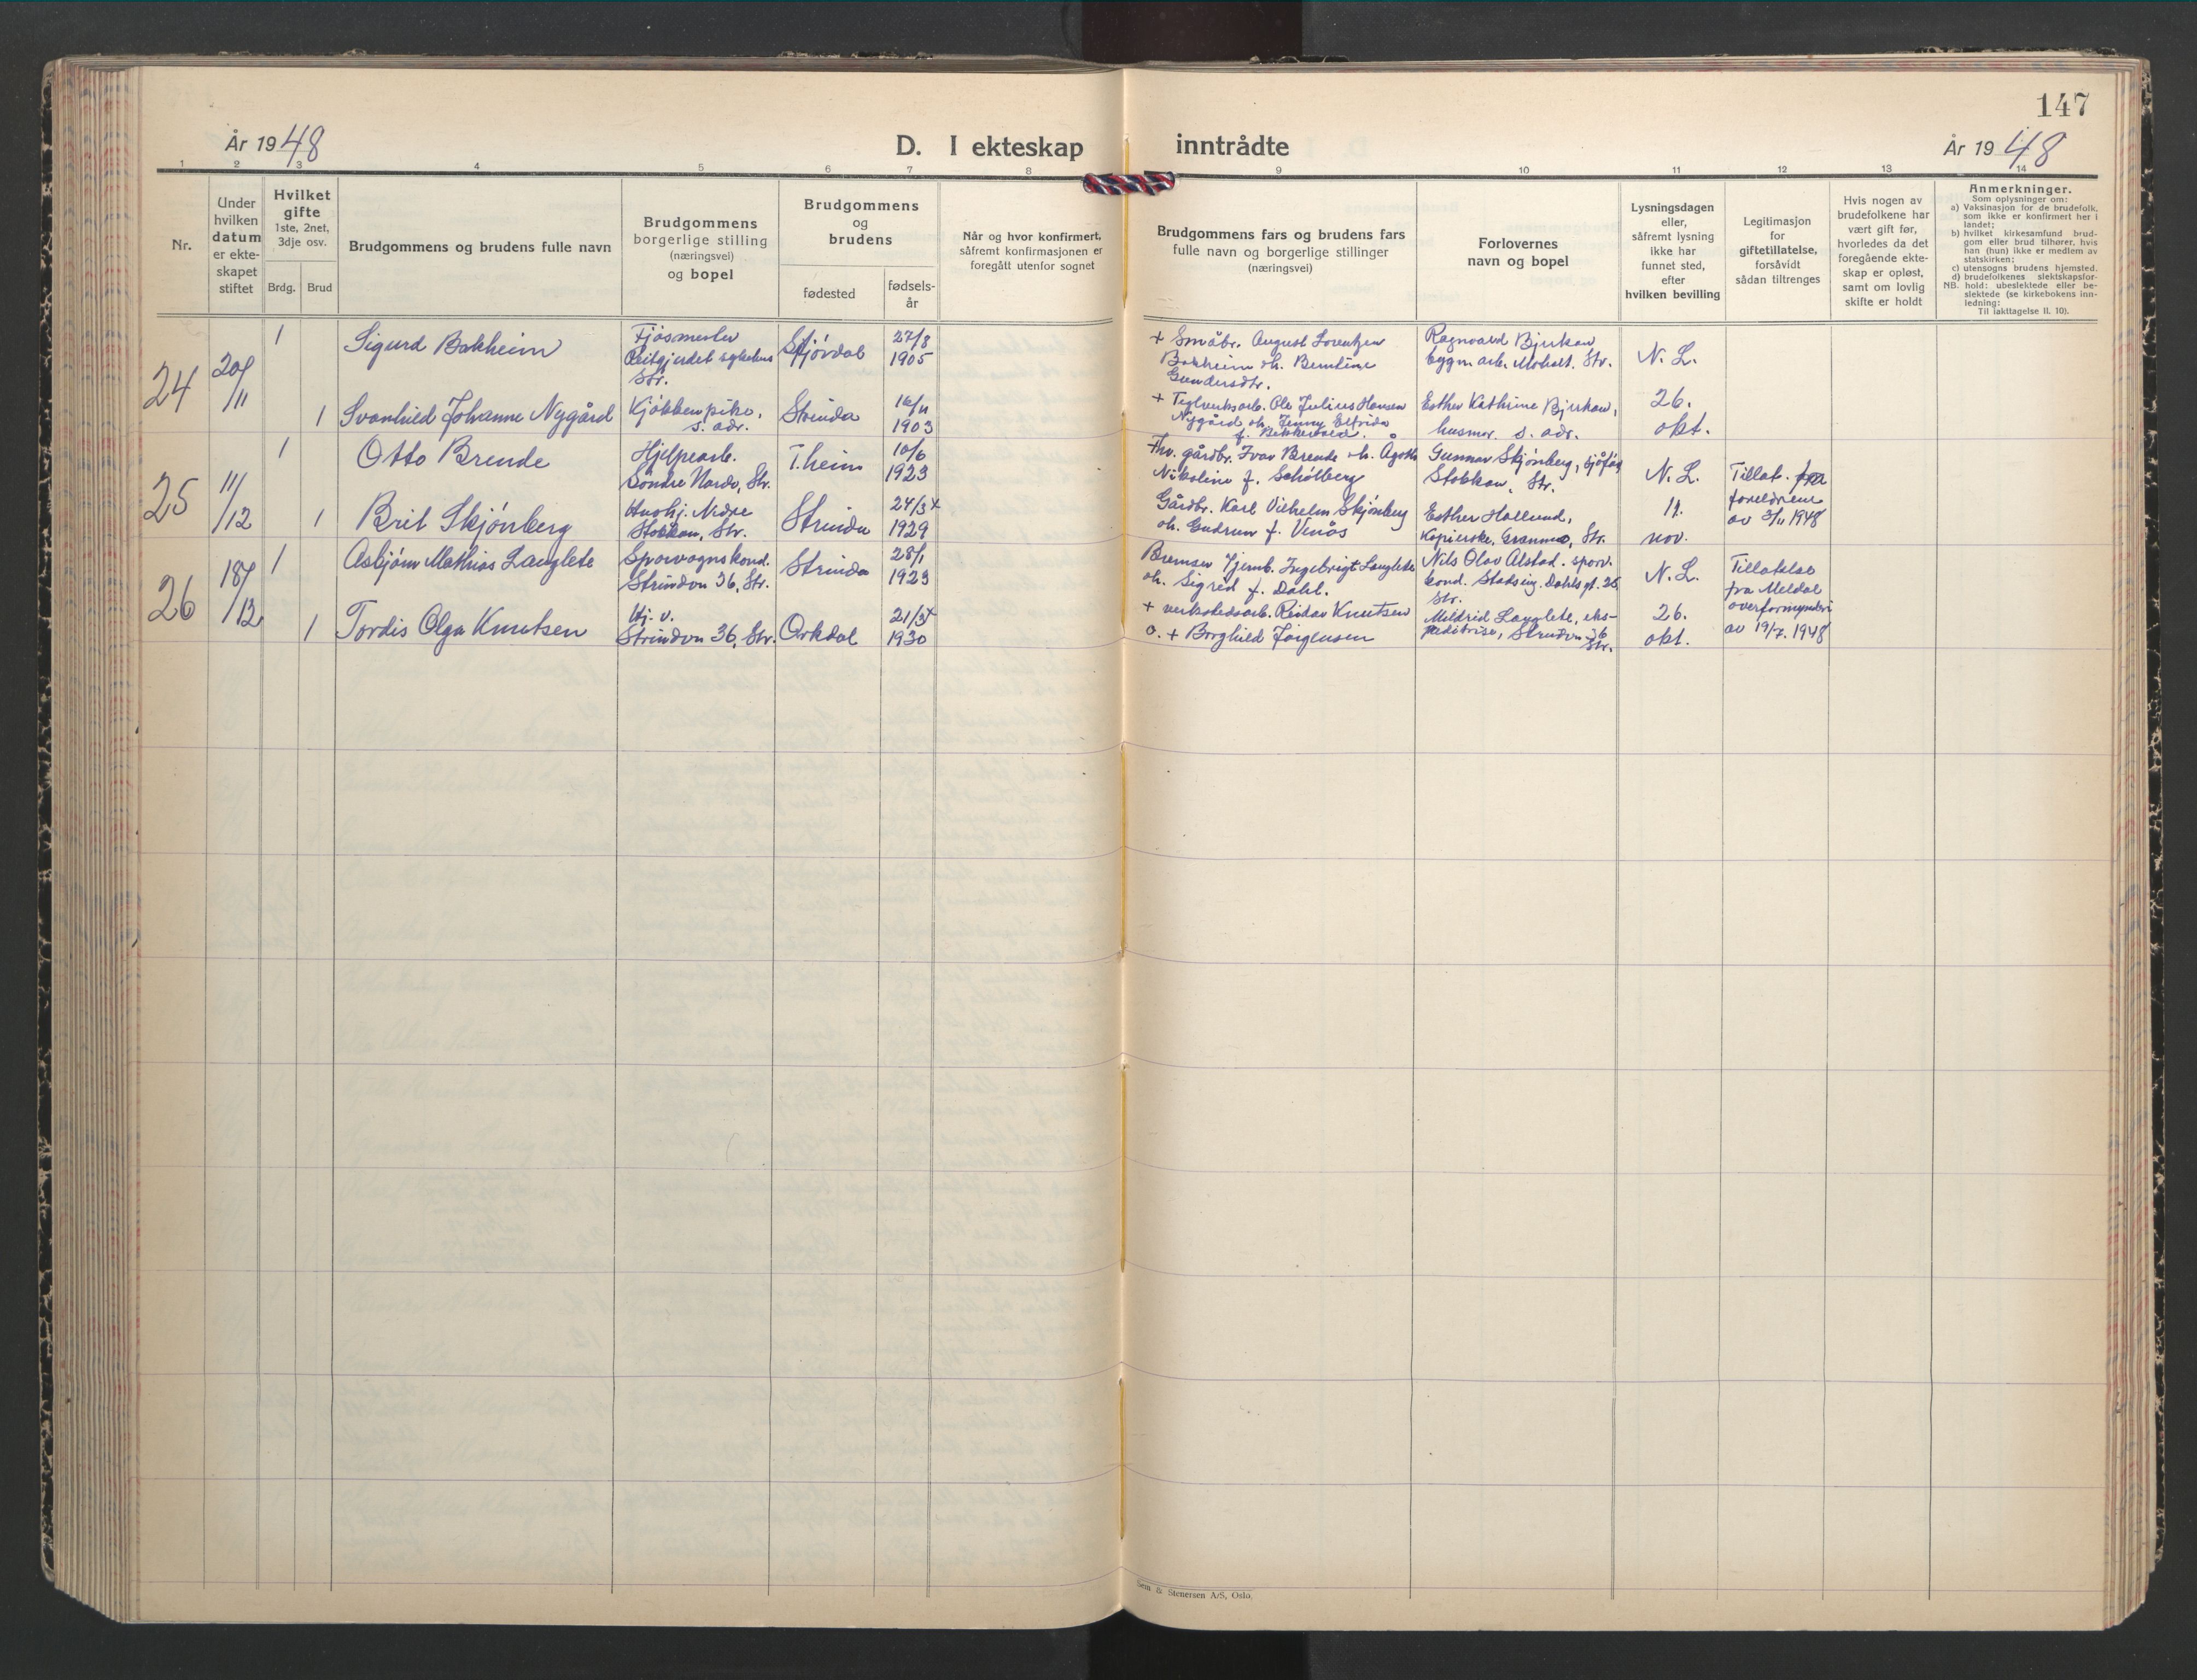 147
År 1948
D. I ekteskap inntrådte
År 1948
1 2 3 4 5 6 7 8 9 10 11 12 13 14
Nr.
Under
hvilken
datum
er ekte-
skapet
stiftet
Hvilket
gifte
1ste, 2net,
3dje osv.
Brdg. Brud
Brudgommens og brudens fulle navn
Brudgommens
borgerlige stilling
(næringsvei)
og bopel
Brudgommens
og
brudens
fødested
fødsels-
år
Når og hvor konfirmert,
såfremt konfirmasjonen er
foregått utenfor sognet
Brudgommens fars og brudens fars
fulle navn og borgerlige stillinger
(næringsvei)
Forlovernes
navn og bopel
Lysningsdagen
eller,
såfremt lysning
ikke har
funnet sted,
efter
hvilken bevilling
Legitimasjon
for
giftetillatelse,
forsåvidt
sådan tiltrenges
Hvis nogen av
brudefolkene har
vært gift før,
hvorledes da det
foregående ekte-
skap er opløst,
samt om lovlig
skifte er holdt
Anmerkninger.
Som oplysninger om:
a) Vaksinasjon for de brudefolk,
som ikke er konfirmert her i
landet;
b) hvilket kirkesamfund brud-
gom eller brud tilhører, hvis
han (hun) ikke er medlem av
statskirken;
c) utensogns brudens hjemsted.
d) brudefolkenes slektskapsfor-
NB. hold: ubeslektede eller be-
slektede (se kirkebokens inn-
ledning:
Til iakttagelse II. 10).
24
20/11
1
Sigurd Bakheim
Fjøsmester
Reitgjerdet sykehus
Str.
Stjørdal
27/8
1905
+ Småbr. August Lorentzen
Bakheim oh. Berntine
Gundersdtr.
Ragnvald Bjerkan
bygn. arb. Moholt. Str.
N. L.
1
Svanhild Johanne Nygård
Kjøkkenpike,
s. adr.
Strinda
16/11
1903
+ Teglverksarb. Ole Julius Hansen
Nygård oh. Jenny Elfrida
f.
Esther Kathrine Bjerkan,
husmor. s. adr.
26.
okt.
25
11/12
1
Otto Brende
Hjelpearb.
Søndre Nardo, Str.
T.heim
10/6
1923
+ hv. gårdbr. Ivar Brende oh. Agoth
Nikoline f. Schølberg
Gunnar Skjønberg, sjåfør
Stokkan, Str.
N. L.
Tillat. fra
foreldrene
av 3/11 1948
1
Brit Skjønberg
Hushj. Nedre
Stokkan, Str.
Strinda
24/3 x
1929
Gårdbr. Karl Vilhelm Skjønberg
oh. Gudrun f. Venås
Esther Hallund,
Kopierske, Granmo, Str.
11.
nov.
26
18/12
1
Asbjørn Mathias Langlete
Sporvognskond.
Strindvn 36, Str.
Strinda
28/1
1923
Bremser Jernb. Ingebrigt Langlete
oh. Sigred f. Dahl.
Nils Olav Alstad. sporv.
kond. Stadsing. Dahls gt. 26
Str.
N. L.
Tillatelse
fra Meldal
overformynderi
av 19/7. 1948
1
Tordis Olga Knutsen
Hj. v.
Strindvn 36, Str.
Orkdal
21/3 x
1930
+ verkstedsarb. Reidar Knutsen
o. + Borghild Jørgensen
Meldrid Langlete, eks-
peditrise, Strindvn 36
Str.
26.
okt.
Sem & Stenersen A/S, Oslo.